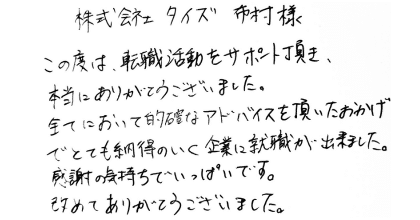 株式会社 タイズ 市村様
この度は、転職活動をサポート頂き、
本当にありがとうございました。
全てにおいて的確なアドバイスを頂いたおかげ
でとても納得のいく企業に就職が出来ました。
感謝の気持ちでいっぱいです。
改めてありがとうございました。